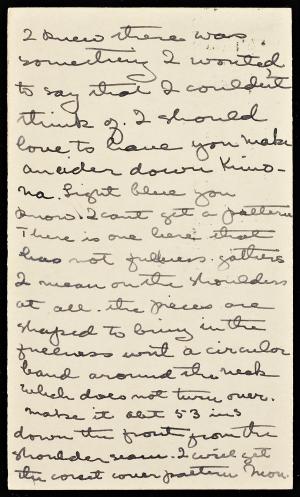 I knew there was
something I wanted
to say that I couldn't
think of. I should
love to have you make
an eider down Kimo-
na. Light blue you
know. I cant get a pattern
There is one here that
has not fullness. gathers
I mean on the shoulders
at all. the pieces are
shaped to bring in the
fullness with a circular
band around the neck
which does not turn over.
make it abt 53 ins
down the front from the
shoulder seam. I will get
the corset cover pattern Mon.